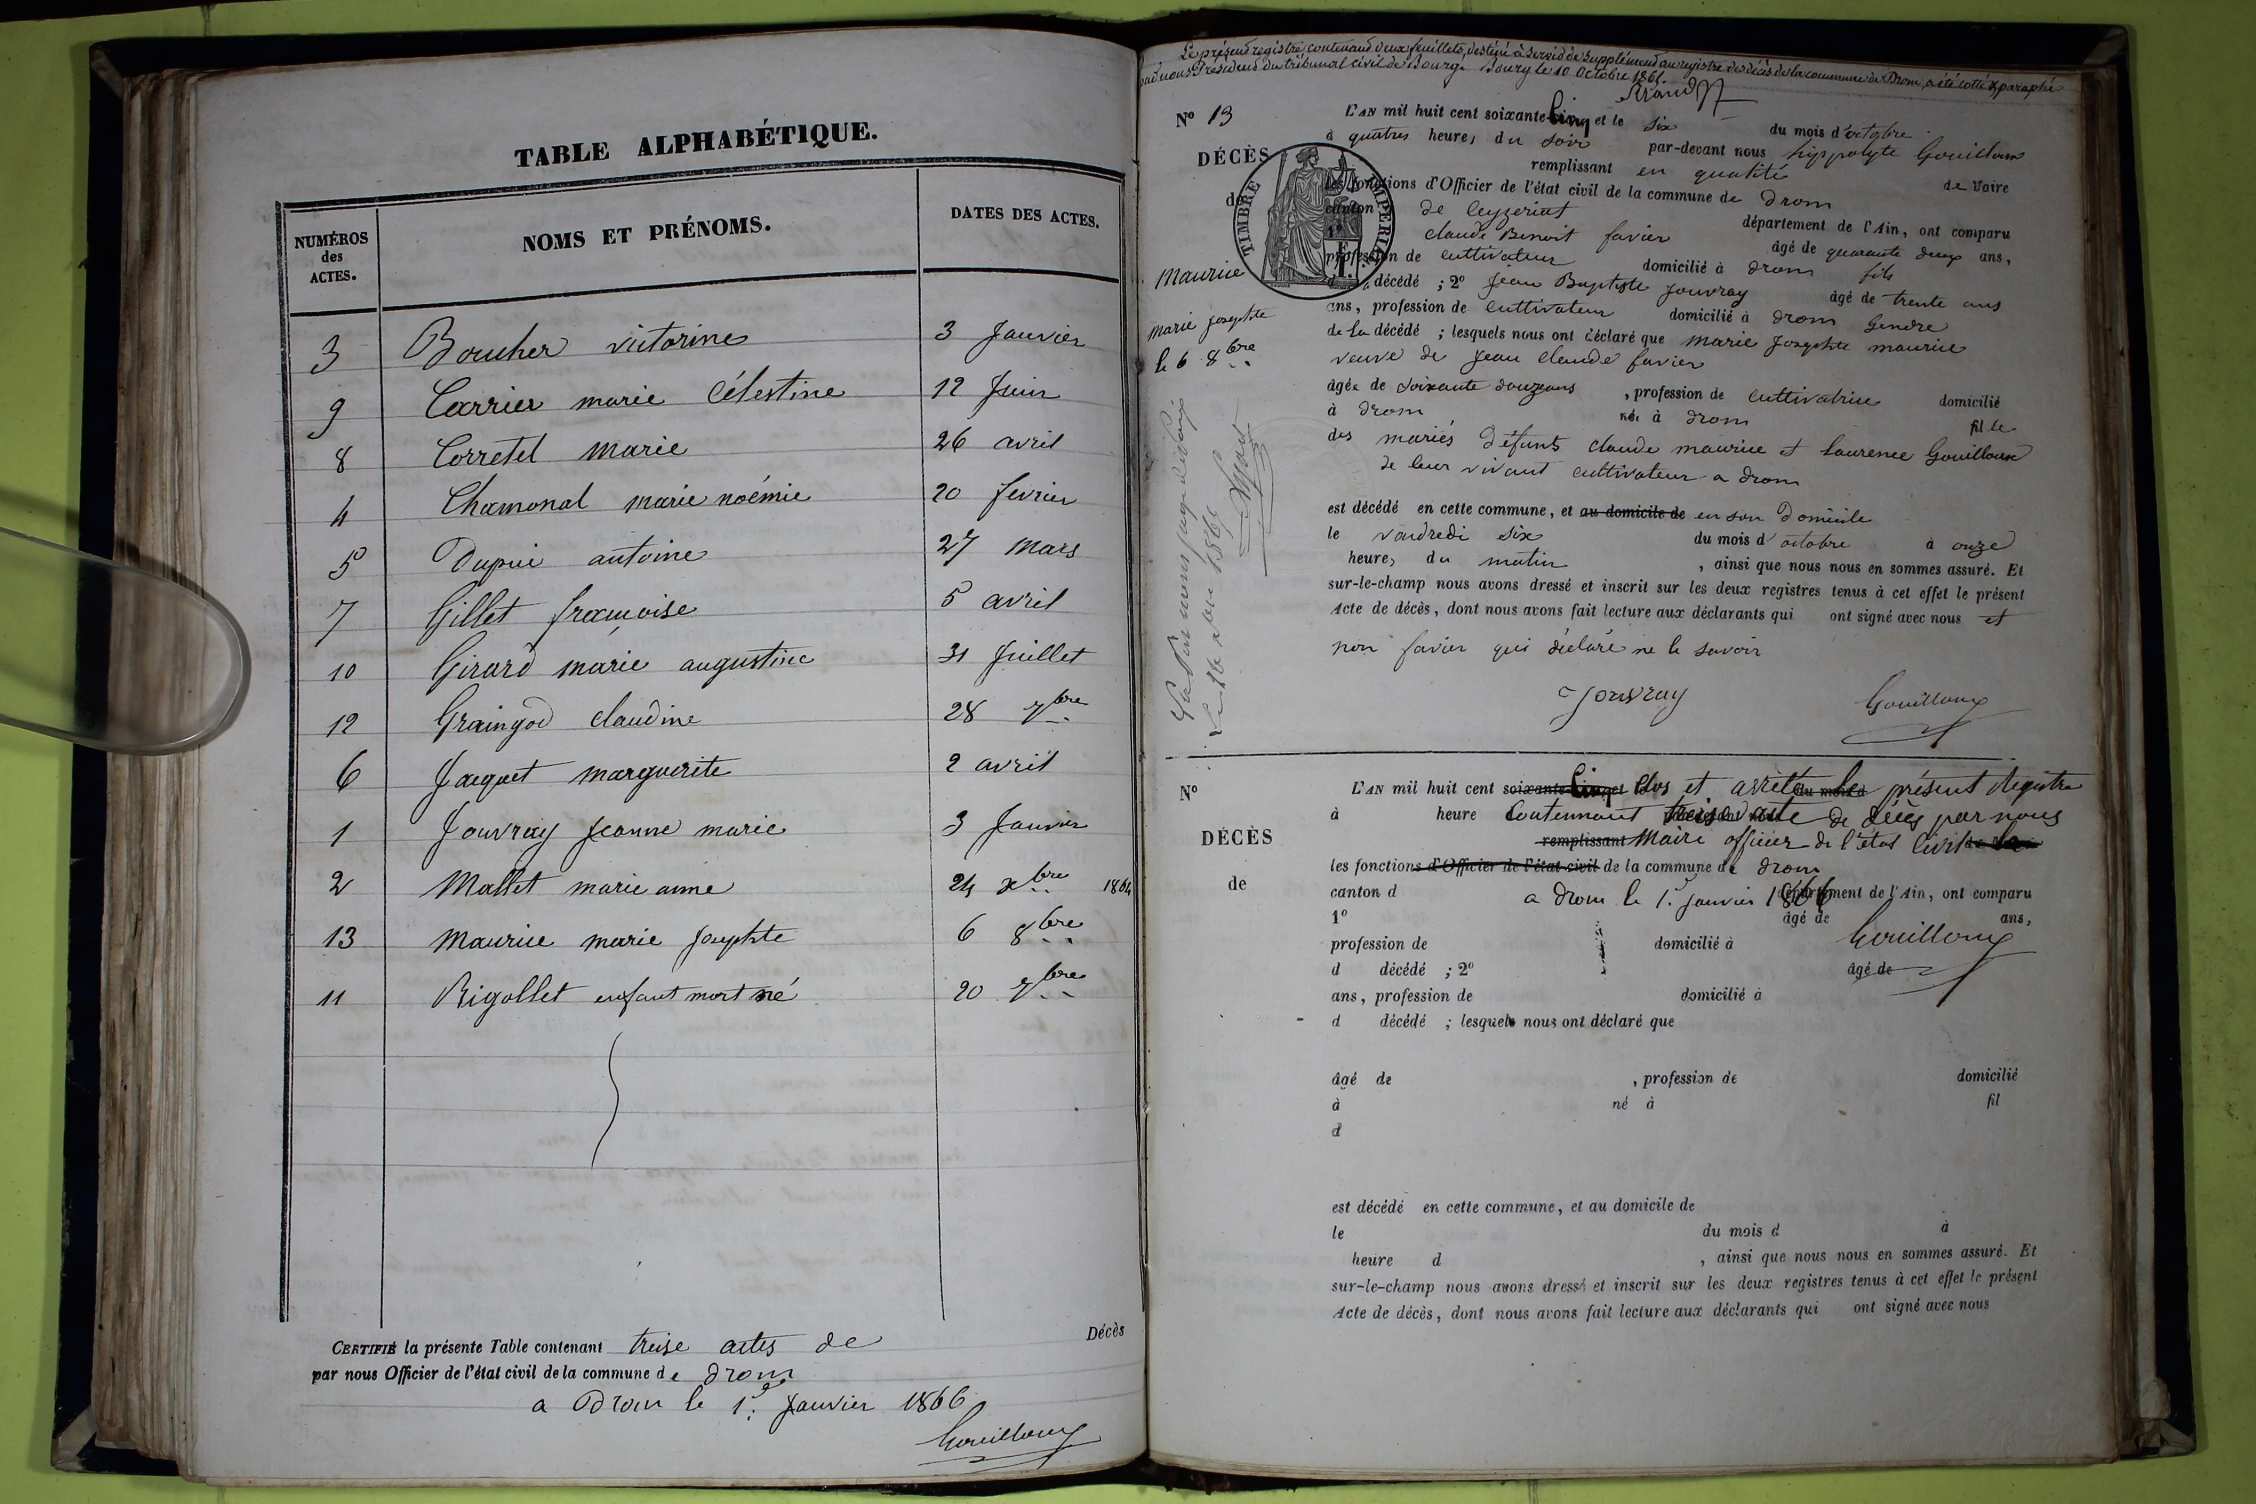 TABLE ALPHABÉTIQUE.
NUMÉROS des ACTES.
NOMS ET PRÉNOMS.
DATES DES ACTES.
3 Boucher victorine 3 Janvier
9 Carrier marie Célestine 12 Juin
8 Corretel marie 26 avril
4 Chamonal marie noémie 20 fevrier
5 Dupui antoine 27 mars
7 Gillet françoise 5 avril
10 Girard marie augustine 31 Juillet
12 Graingod claudine 28 7bre
6 Jacquet marguerite 2 avril
1 Jouvray Jeanne marie 3 Janvier
2 Mallet marie anne 24 xbre 1864
13 maurice marie Josephte 6 8bre
11 Rigollet enfant mort né 20 7bre
CERTIFIÉ la présente Table contenant treise actes de Décès
par nous Officier de l'état civil de la commune de drom
a Drom le 1er Janvier 1866
Gouilloux
Le présent registre contenant deux feuillets, destiné à servir de supplément au registre des décès de la commune de Drom, a été cotté & paraphé
par nous Président du tribunal civil de Bourg. Bourg le 10 Octobre 1861.
N° 13
DÉCÈS
de
maurice
marie Josephte
le 6 8bre
TIMBRE IMPÉRIAL
1 F
L'AN mil huit cent soixante-Cinq et le six du mois d'octobre
à quatres heures du soir par-devant nous hippolyte Gouilloux
remplissant en qualité de Maire
les fonctions d'Officier de l'état civil de la commune de drom
canton de Ceyzeriat département de l'Ain, ont comparu
1° claude Benoit favier âgé de quarante deux ans,
profession de cultivateur domicilié à drom fils
d décédé ; 2° Jean Baptiste Jouvray âgé de trente ans
ans, profession de cultivateur domicilié à drom Gendre
de la décédé ; lesquels nous ont déclaré que marie Josephte maurice
veuve de Jean claude favier
âgée de soixante douze ans , profession de cultivatrice domicilié
à drom née à drom fille
des mariés défunts claude maurice et laurence Gouilloux
de leur vivant cultivateur a drom
est décédé en cette commune, et au domicile de en son domicile
le vendredi six du mois d'octobre à onze
heures du matin , ainsi que nous nous en sommes assuré. Et
sur-le-champ nous avons dressé et inscrit sur les deux registres tenus à cet effet le présent
Acte de décès, dont nous avons fait lecture aux déclarants qui ont signé avec nous et
non favier qui déclare ne le savoir
Jouvray Gouilloux
N°
DÉCÈS
de
L'AN mil huit cent soixante-Cinq et Clos et arrêté le présent Registre
à heure Contennant treise acte de décès par nous
remplissant Maire officier de l'état Civil
les fonctions d'Officier de l'état civil de la commune de drom
canton d a drom le 1er Janvier 1866 département de l'Ain, ont comparu
1° âgé de ans,
Gouilloux
profession de domicilié à
d décédé ; 2° âgé de
ans, profession de domicilié à
d décédé ; lesquels nous ont déclaré que
âgé de , profession de domicilié
à né à fil
d
est décédé en cette commune, et au domicile de
le du mois d à
heure d , ainsi que nous nous en sommes assuré. Et
sur-le-champ nous avons dressé et inscrit sur les deux registres tenus à cet effet le présent
Acte de décès, dont nous avons fait lecture aux déclarants qui ont signé avec nous